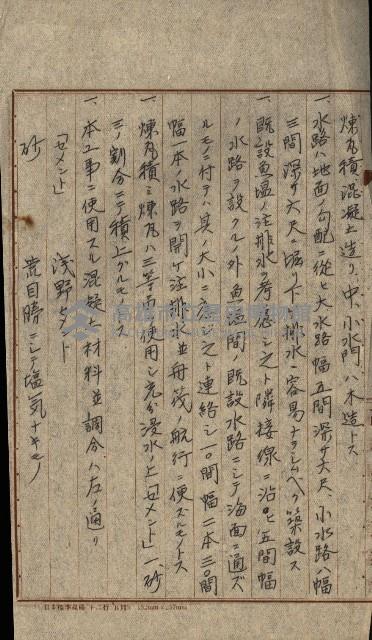 煉瓦積混凝土造リ、中、小水門ハ木造トス
一、水路ハ地面ノ勾配ニ従ヒ大水路幅五間深サ六尺、小水路ハ幅
三間深サ六尺ニ堀下ゲ排水ニ容易ナラシムベク築設ス
一、既設魚塭注排水ヲ考慮シ之ト隣接線ニ沿ヒ五間幅
ノ水路ヲ設クル外魚塭間既設水路ニシテ海面ニ通ズ
ルモノニ付テハ其ノ大小ニ之ト連絡シ一〇間幅二本三〇間
幅一本ノ水路ヲ開ケ注排水並舟筏ノ航行ニ便ズルモノトス
一、煉瓦積ミ煉瓦ハ三等品使用シ充分浸水ノ上「セメント」一砂
三ノ割合ニテ積上グルモノトス
一、本工事ニ使用スル混凝土材料並調合ハ左ノ通リ
「セメント」 浅野セメント
砂 荒目時ニシテ塩気ナキモノ
高雄市立歷史博物館